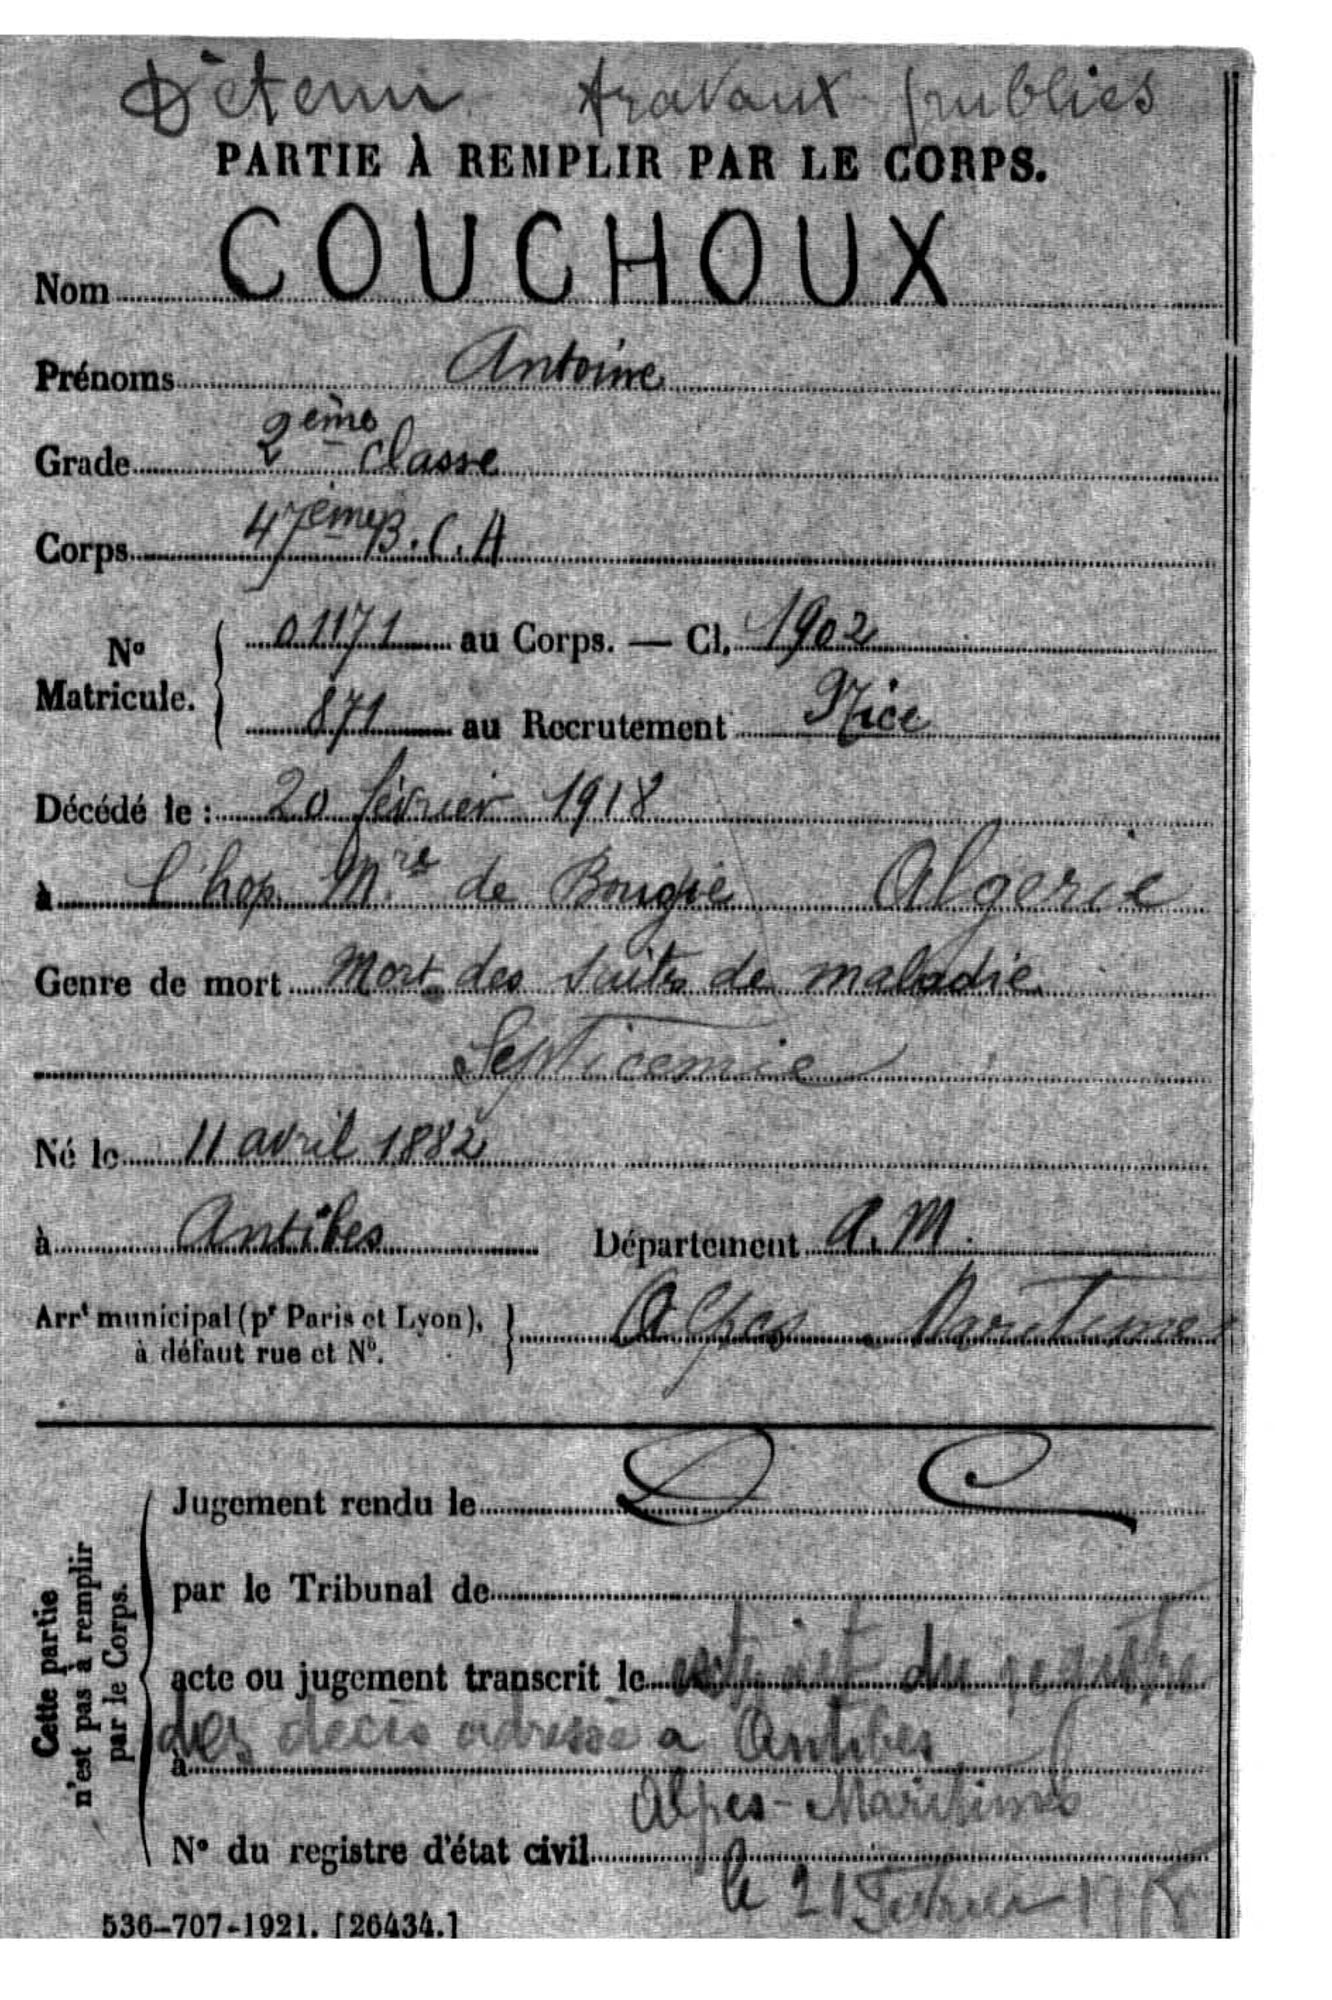 Détenu travaux publics
PARTIE À REMPLIR PAR LE CORPS.
Nom COUCHOUX
Prénoms Antoine
Grade 2ème classe
Corps 47ème B.C.A
No Matricule. 01171 au Corps. — Cl. 1902
871 au Recrutement Nice
Décédé le : 20 février 1918
à l'hop. Mre de Bougie Algerie
Genre de mort Mort des suites de maladie
Septicemie
Né le 11 avril 1882
à Antibes Département A.M.
Arrt municipal (pr Paris et Lyon), à défaut rue et No. Alpes Maritimes
Cette partie n'est pas à remplir par le Corps.
Jugement rendu le D C
par le Tribunal de
acte ou jugement transcrit le extrait du registre
à des décès adressé a Antibes
Alpes-Maritimes
No du registre d'état civil
le 21 Fevrier 1918
536-707-1921. [26434.]